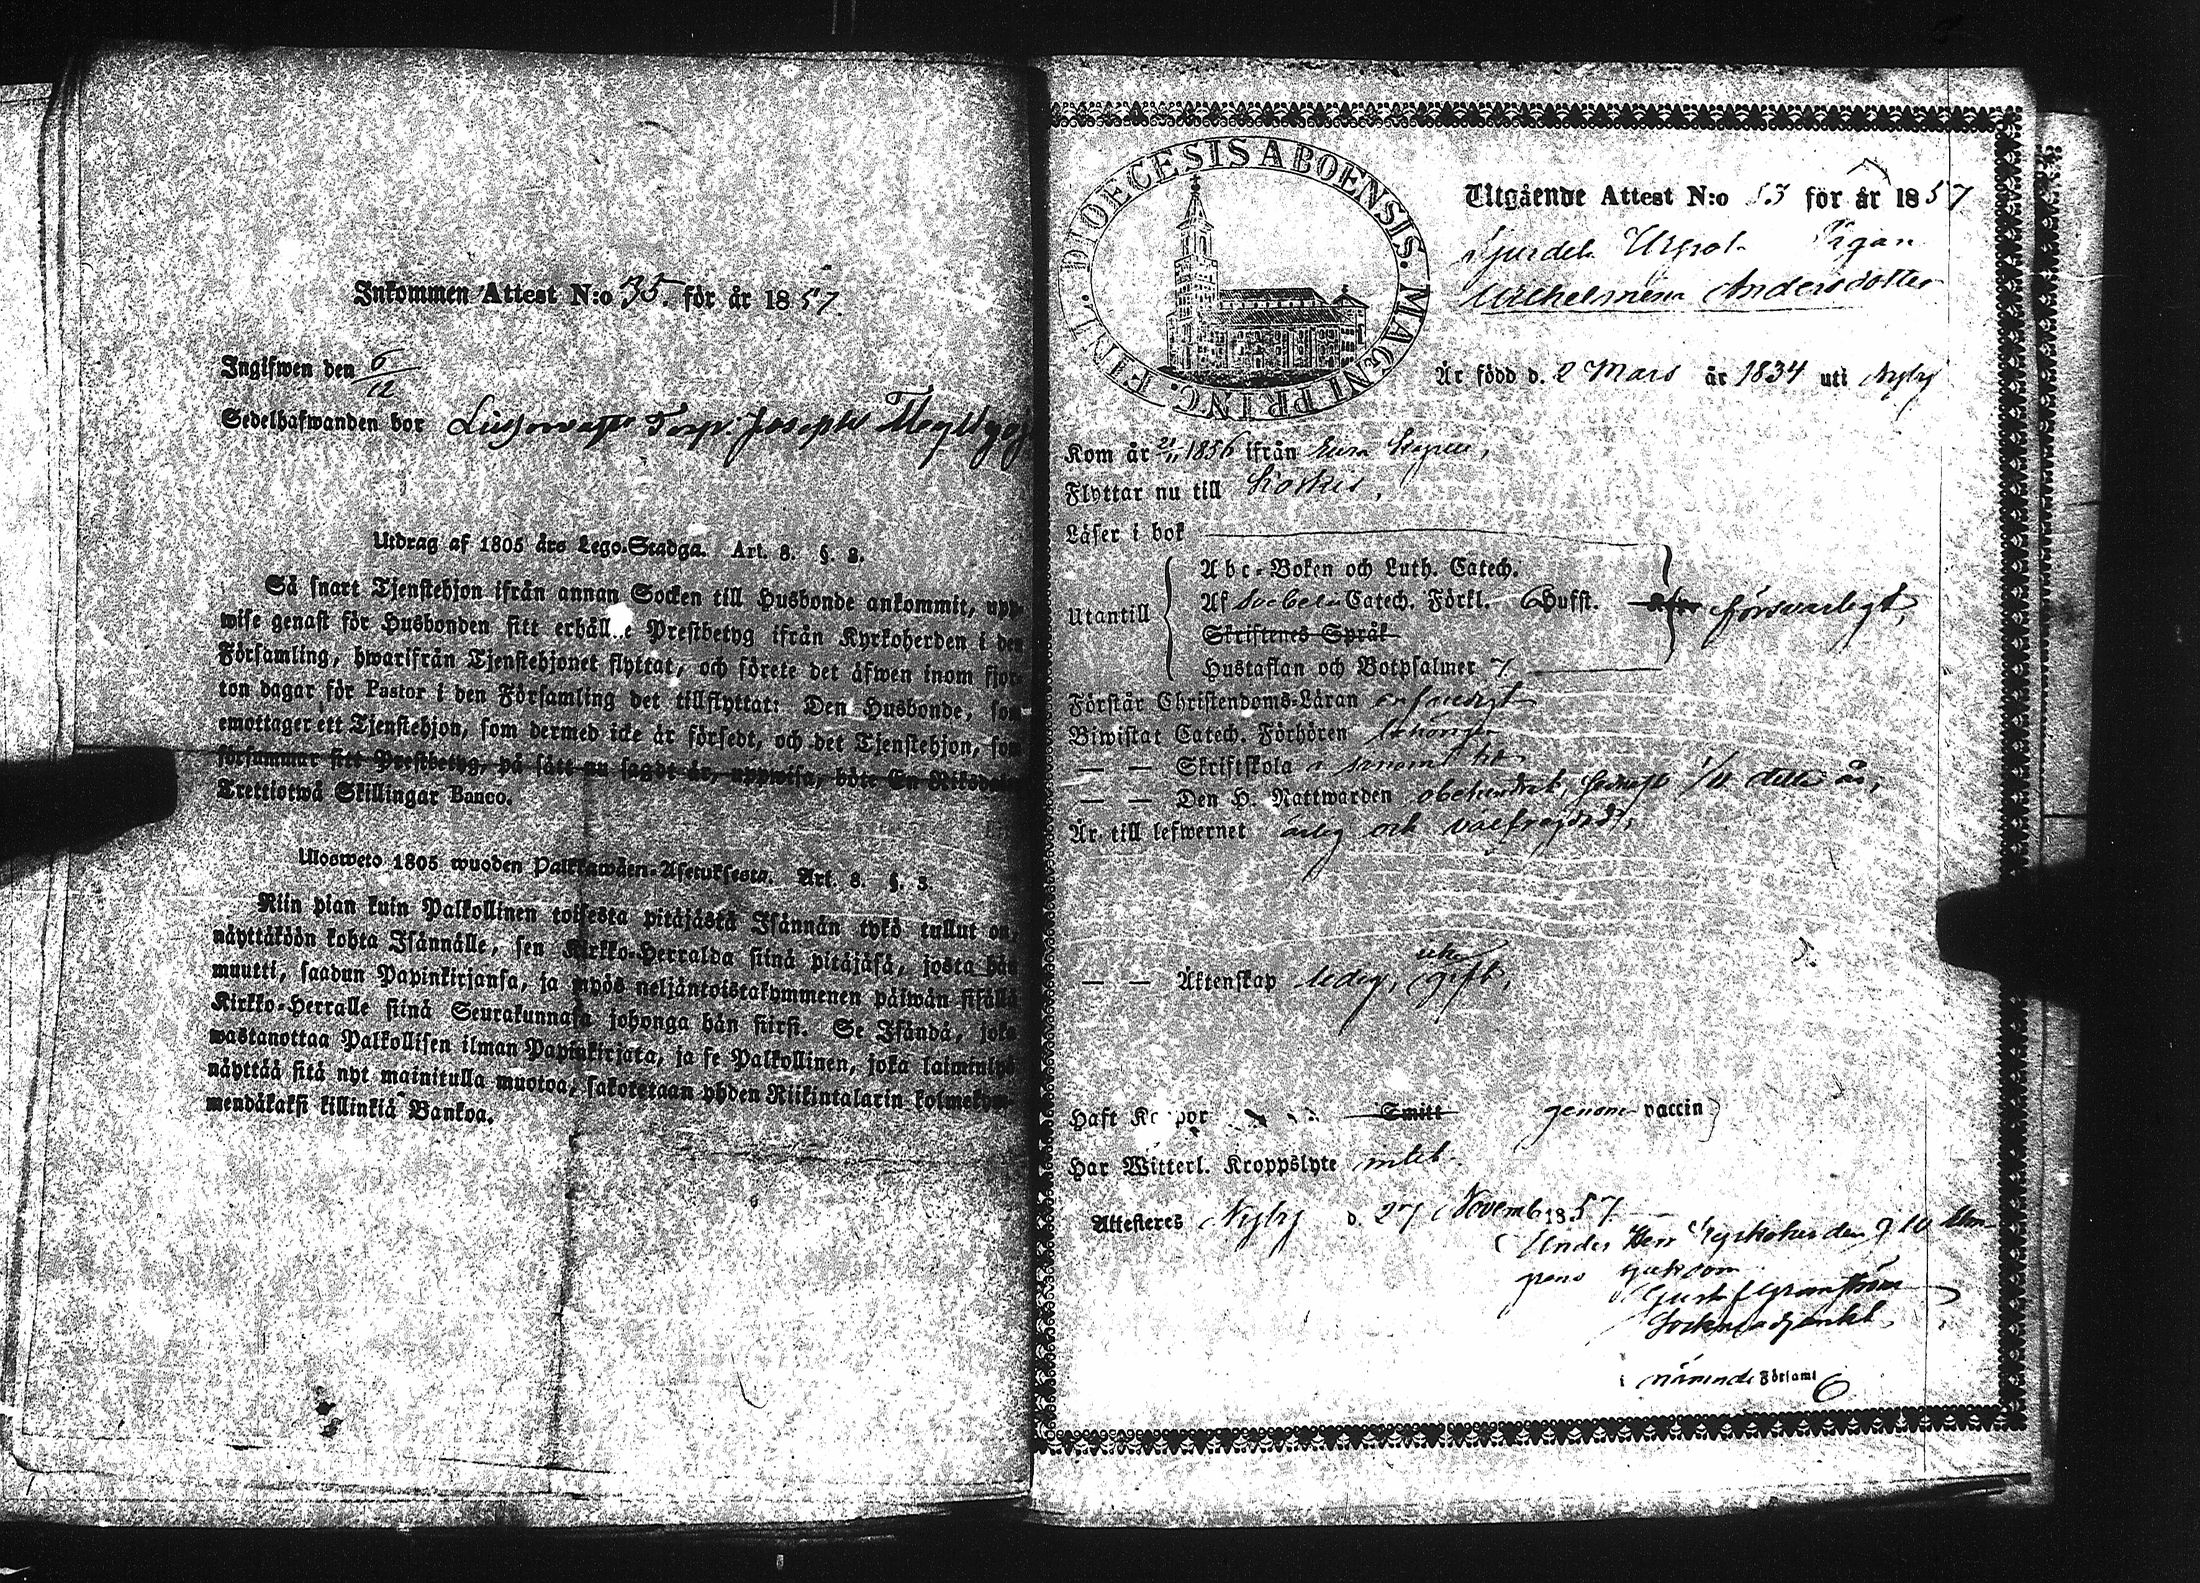 Inkommen Attest N:o 35. för år 1857.
Ingifwen den 6/12
Sedelhafwanden bor Torp. Josephs
Utdrag af 1805 års Lego-Stadga. Art. 8. §. 3.
Så snart Tjenstehjon ifrån annan Socken till Husbonde ankommit, upp-
wise genast för Husbonden sitt erhållne Prestbetyg ifrån Kyrkoherden i den
Församling, hwarifrån Tjenstehjonet flyttat, och förete det äfwen inom fjor-
ton dagar för Pastor i den Församling det tillflyttat: Den Husbonde, som
emottager ett Tjenstehjon, som dermed icke är försedt, och det Tjenstehjon, som
försummar sitt Prestbetyg, på sätt nu sagdt är, uppwisa, böte En Riksdal.
Trettiotwå Skillingar Banco.
Ulosweto 1805 wuoden Palkkawäen-Asetuksesta. Art. 8. §. 3.
Niin pian kuin Palkollinen toisesta pitäjästä Isännän tykö tullut on,
näyttäköön kohta Isännälle, sen Kirkko-Herralda siinä pitäjäsä, josta hän
muutti, saadun Papinkirjansa, ja myös neljäntoistakymmenen päiwän sisällä
Kirkko-Herralle siinä Seurakunnasa johonga hän siirsi. Se Isändä, joka
wastanottaa Palkollisen ilman Papinkirjata, ja se Palkollinen, joka laiminlyö
näyttää sitä nyt mainitulla muotoa, sakotetaan yhden Riikintalarin kolmekym-
mendäkaksi killinkiä Bankoa.
FINL. DIOECESIS ABOENSIS. MAGNI PRINC.
Utgående Attest N:o 53 för år 1857
Pigan
Wilhelmina Andersdotter
Är född d. 2 Mars år 1834 uti Nyby
Kom år 1856 ifrån
Flyttar nu till Koskis,
Läser i bok
Utantill
Abc-Boken och Luth. Catech.
Af Svebelii Catech. Förkl. Hufst. försvarligt,
Skriftenes Språk
Hustaflan och Botpsalmer 7
Förstår Christendoms-Läran
Biwistat Catech. Förhören
— — Skriftskola i sinom tid
— — Den H. Nattwarden obehindrat, senast 1/11 detta år,
Är till lefwernet ärlig och välfrejdad,
— — Äktenskap ledig, icke gift,
Haft Koppor Smitt genom vaccin
Har Witterl. Kroppslyte intet
Attesteres Nyby d. 27 November 1857.
Under Herr Kyrkoherden
sjukdom
Gustaf Granström
Sockneadjunkt
i nämnde Församl